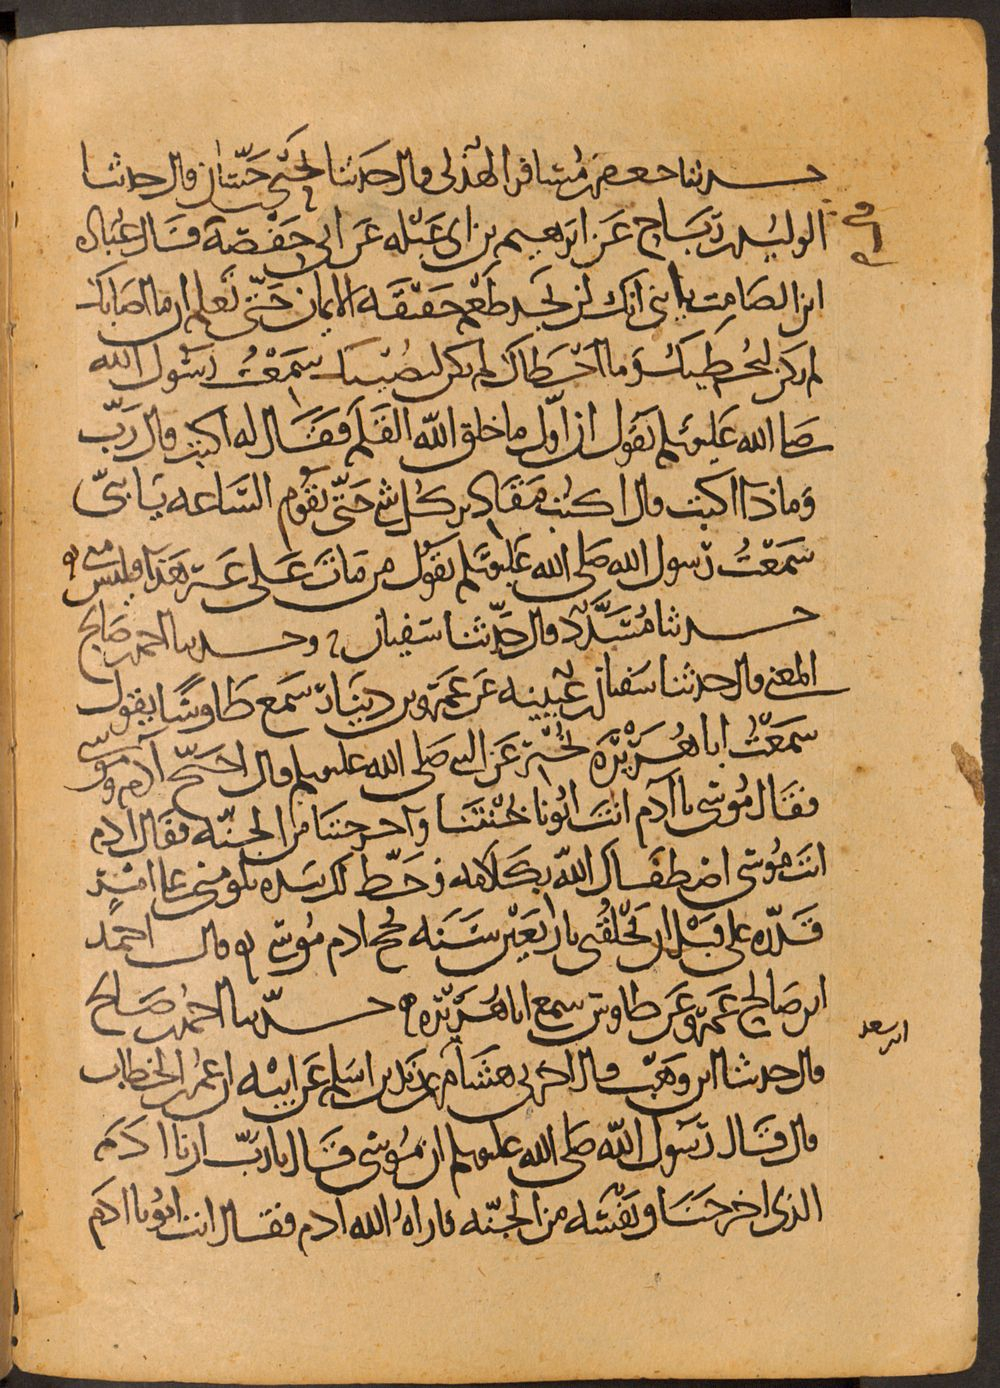 حدثنا جعفر بن مسافر الهذلي قال حدثنا يحيى بن حسان قال حدثنا
الوليد بن رباح عن ابرهيم بن ابي عبله عن ابي حفصة قال قال عباده
ابن الصامت يا بني انك لن تجد طعم حقيقه الايمان حتى تعلم ان ما اصابك
لم يكن ليخطيك وما اخطاك لم يكن ليصيبك سمعت رسول الله
صلى الله عليه وسلم يقول ان اول ما خلق الله القلم فقال له اكتب قال رب
وماذا اكتب قال اكتب مقادير كل شي حتى تقوم الساعه يا بني
سمعت رسول الله صلى الله عليه وسلم يقول من مات على غير هذا فليس مني
حدثنا مسدد قال حدثنا سفيان ح وحدثنا احمد بن صالح
المعنى قال حدثنا سفيان بن عيينه عن عمرو بن دينار سمع طاوسا يقول
سمعت ابا هريرة يخبر عن النبي صلى الله عليه وسلم قال احتج آدم وموسى
فقال موسى يا آدم انت ابونا خيبتنا واخرجتنا من الجنه فقال ادم
انت موسى اصطفاك الله بكلامه وخط لك بيده تلومني على امر
قدره علي قبل ان يخلقني باربعين سنه فحج ادم موسى قال احمد
ابن صالح عن عمرو عن طاوس سمع ابا هريره حدثنا احمد بن صالح
قال حدثنا ابن وهب قال اخبرني هشام بن سعد عن زيد بن اسلم عن ابيه ان عمر بن الخطاب
قال قال رسول الله صلى الله عليه وسلم ان موسى قال يا رب ارنا ادم
الذي اخرجنا ونفسه من الجنه فاراه الله ادم فقال انت ابونا ادم
ابن سعد